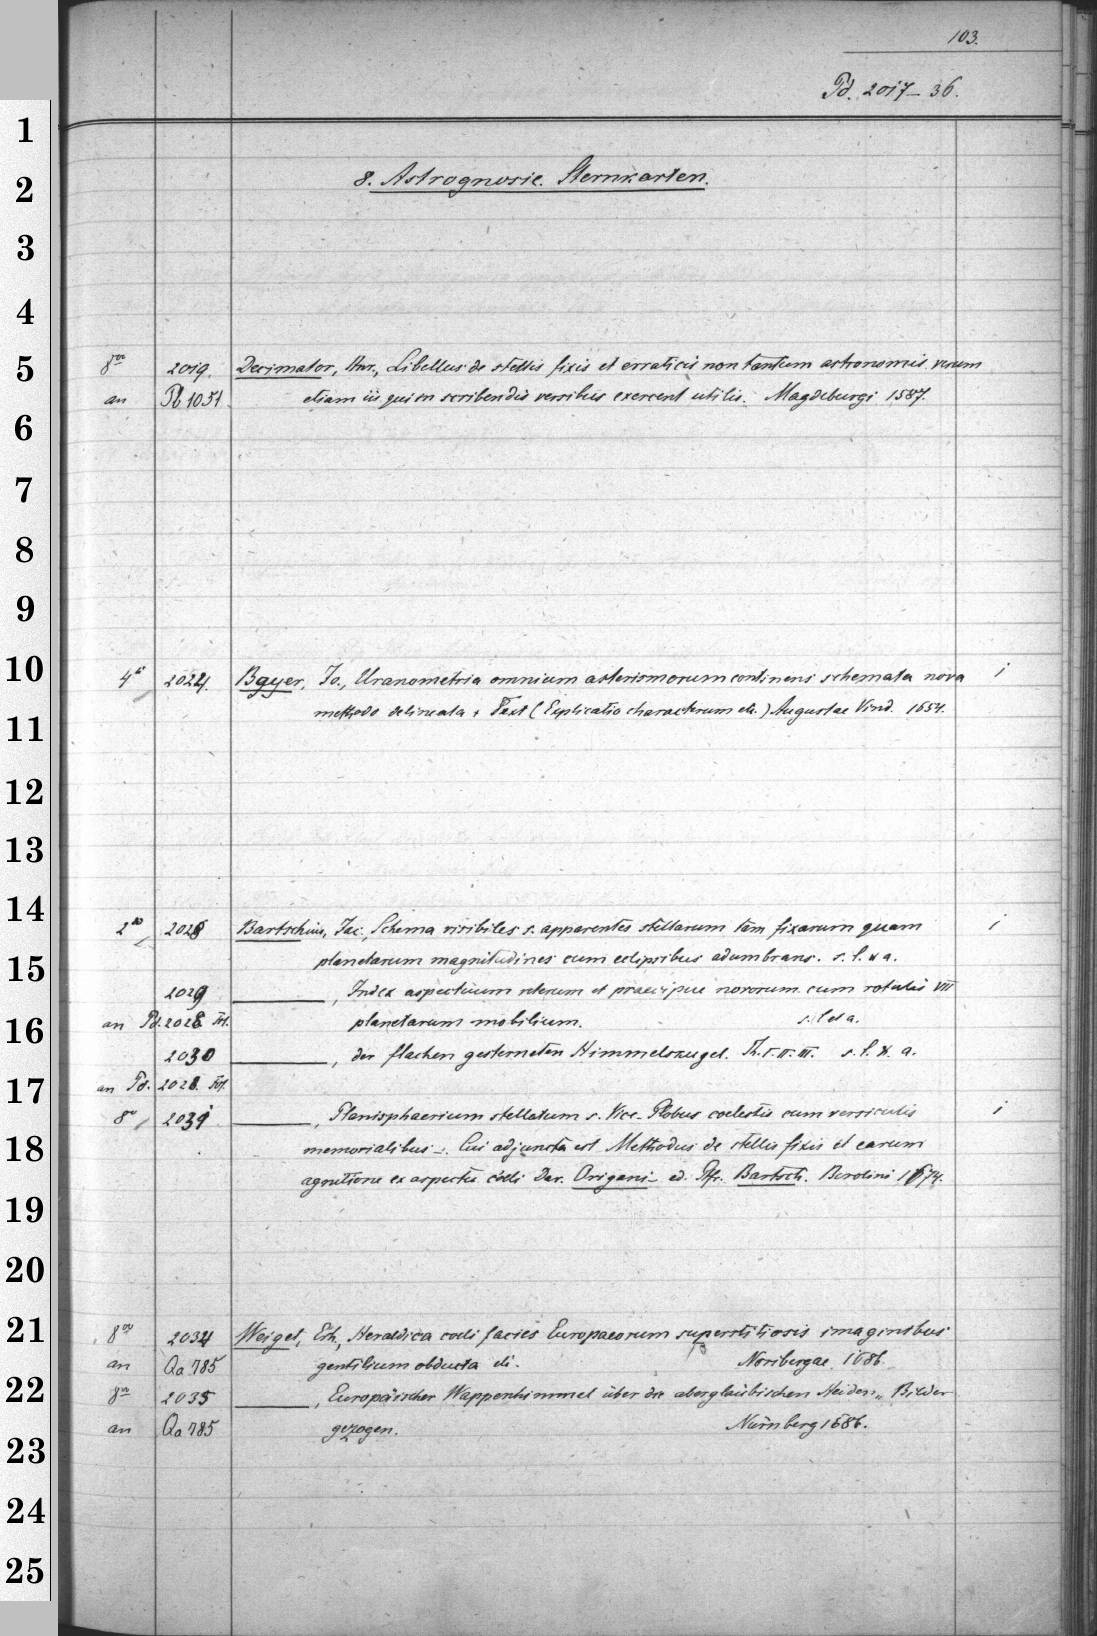 103.
Pd. 2017-36.
8. Astrognosie. Sternkarten.
8vo 2019. Decimator, Hnr., Libellus de stellis fixis et erraticis non tantum astronomis verum
an Pb 1051 etiam iis qui in scribendis versibus exercent utilis. Magdeburgi 1587.
4to 2024. Bayer, Jo., Uranometria omnium asterismorum continens schemata nova i
methodo delineata + Text (Explicatio characterum etc.) Augustae Vind. 1654.
2to 2028 Bartschius, Jac., Schema visibiles s. apparentes stellarum tam fixarum quam i
planetarum magnitudines cum eclipsibus adumbrans. s. l. & a.
2029 ———, Index aspectuum veterum et praecipue novorum cum rotulis VII
an Pd. 2028 Fol. planetarum mobilium. s. l et a.
2030 ———, der flachen gesterneten Himmelskugel. Th. I. II. III. s. l. & a.
an Pd. 2028. Fol.
8o 2031 ———, Planisphaerium stellatum s. Vice-Globus coelestis cum versiculis i
memorialibus -. Cui adjuncta est Methodus de stellis fixis et earum
agnitione ex aspectu coeli Dav. Origani- ed. Bartsch. Berolini 1674.
8vo 2034 Weigel, Erh., Heraldica coeli facies Europaeorum superstitiosis imaginibus
an Qa 785 gentilium obducta etc. Noribergae 1686.
8vo 2035 ———, Europäischer Wappenhimmel über die abergläubischen Heiden„ Bilder
an Qa 785 gezogen. Nürnberg 1686.
1
2
3
4
5
6
7
8
9
10
11
12
13
14
15
16
17
18
19
20
21
22
23
24
25